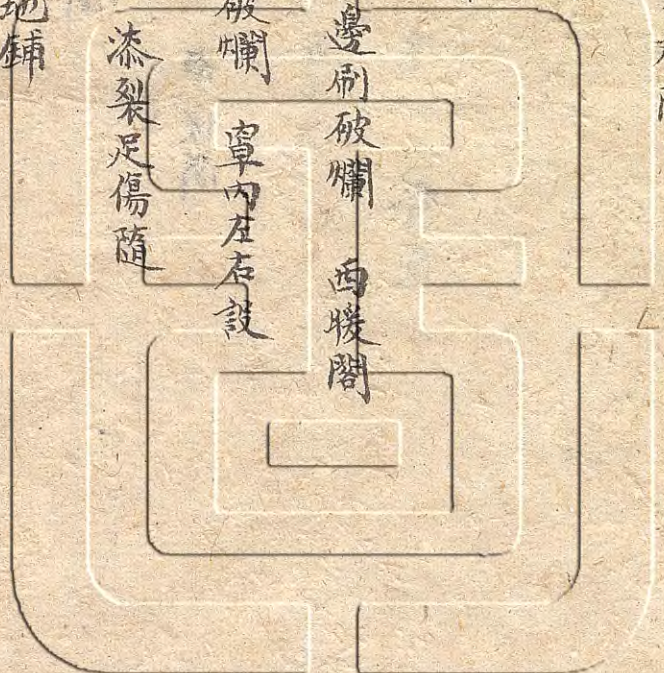 邊刷破爛 西暖閣
破爛 罩内左右設
漆裂足傷隨
地鋪